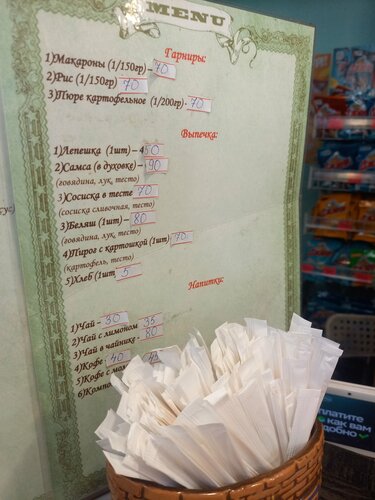 MENU
Гарниры:
1)Макароны (1/150гр) – 70
2)Рис (1/150гр) 70
3)Пюре картофельное (1/200гр) - 70
Выпечка:
1)Лепешка (1шт) – 50
2)Самса (в духовке) – 90
(говядина, лук, тесто)
3)Сосиска в тесте 70
(сосиска сливочная, тесто)
3)Беляш (1шт) – 80
(говядина, лук, тесто)
4)Пирог с картошкой (1шт) 70
(картофель, тесто)
5)Хлеб (1шт) 5
Напитки:
1)Чай – 30
2)Чай с лимоном 35
3)Чай в чайнике - 80
4)Кофе 40
5)Кофе с 45
6)Компо
платите
как вам
удобно